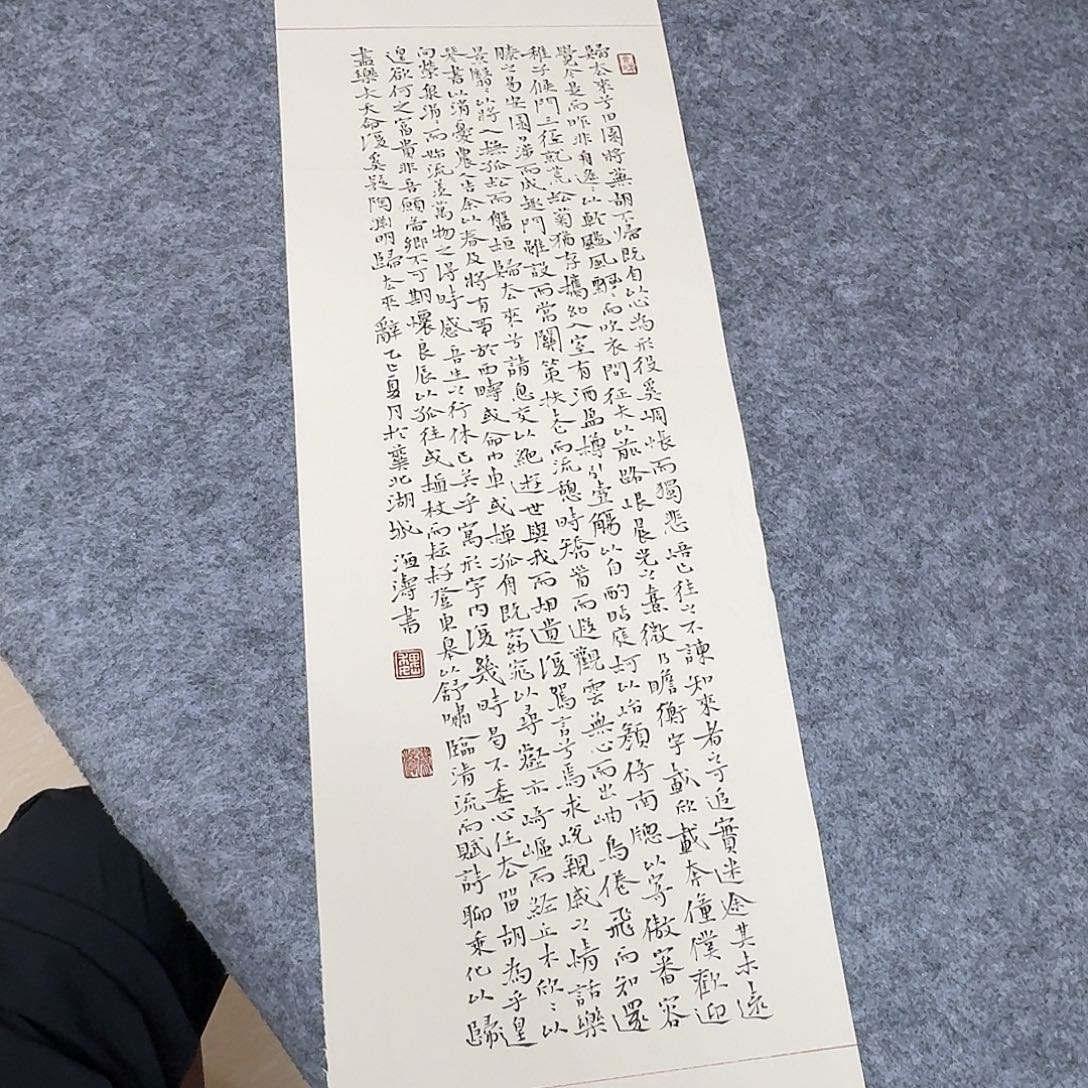 歸去來兮田園將蕪胡不歸既自以心為形役奚惆悵而獨悲悟已往之不諫知來者可追實迷途其未遠
覺今是而昨非舟遙〻以輕颺風飄〻而吹衣問征夫以前路恨晨光之熹微乃瞻衡宇載欣載奔僮僕歡迎
稚子候門三徑就荒松菊猶存攜幼入室有酒盈樽引壺觴以自酌眄庭柯以怡顏倚南窗以寄傲審容
膝之易安園日涉而成趣門雖設而常關策扶老而流憩時矯首而遐觀雲無心而出岫鳥倦飛而知還
景翳〻以將入撫孤松而盤桓歸去來兮請息交以絕遊世與我而相遺復駕言兮焉求悅親戚之情話樂
琴書以消憂農人告余以春及將有事於西疇或命巾車或棹孤舟既窈窕以尋壑亦崎嶇而經丘木欣〻以
向榮泉涓〻而始流羨萬物之得時感吾生之行休已矣乎寓形宇內復幾時曷不委心任去留胡為乎遑
遑欲何之富貴非吾願帝鄉不可期懷良辰以孤往或植杖而耘耔登東皋以舒嘯臨清流而賦詩聊乘化以歸
盡樂夫天命復奚疑陶淵明歸去來辭乙巳夏月於冀北湖城海濤書